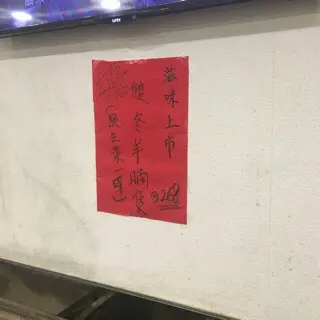 滋味上市
雙冬羊腩煲 $268
(生菜一碟)